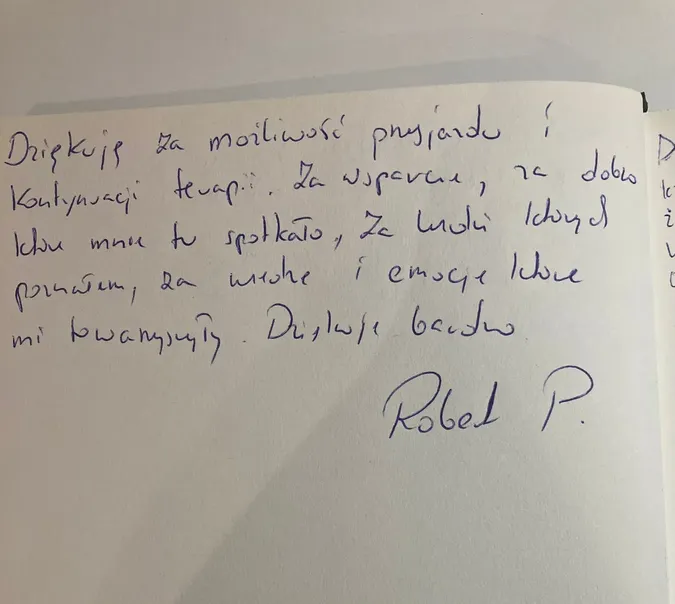 Dziękuję za możliwość przyjazdu i
kontynuacji terapii. Za wsparcie, za dobro
które mnie tu spotkało, za ludzi których
poznałem, za wiedzę i emocje które
mi towarzyszyły. Dziękuję bardzo
Robert P.